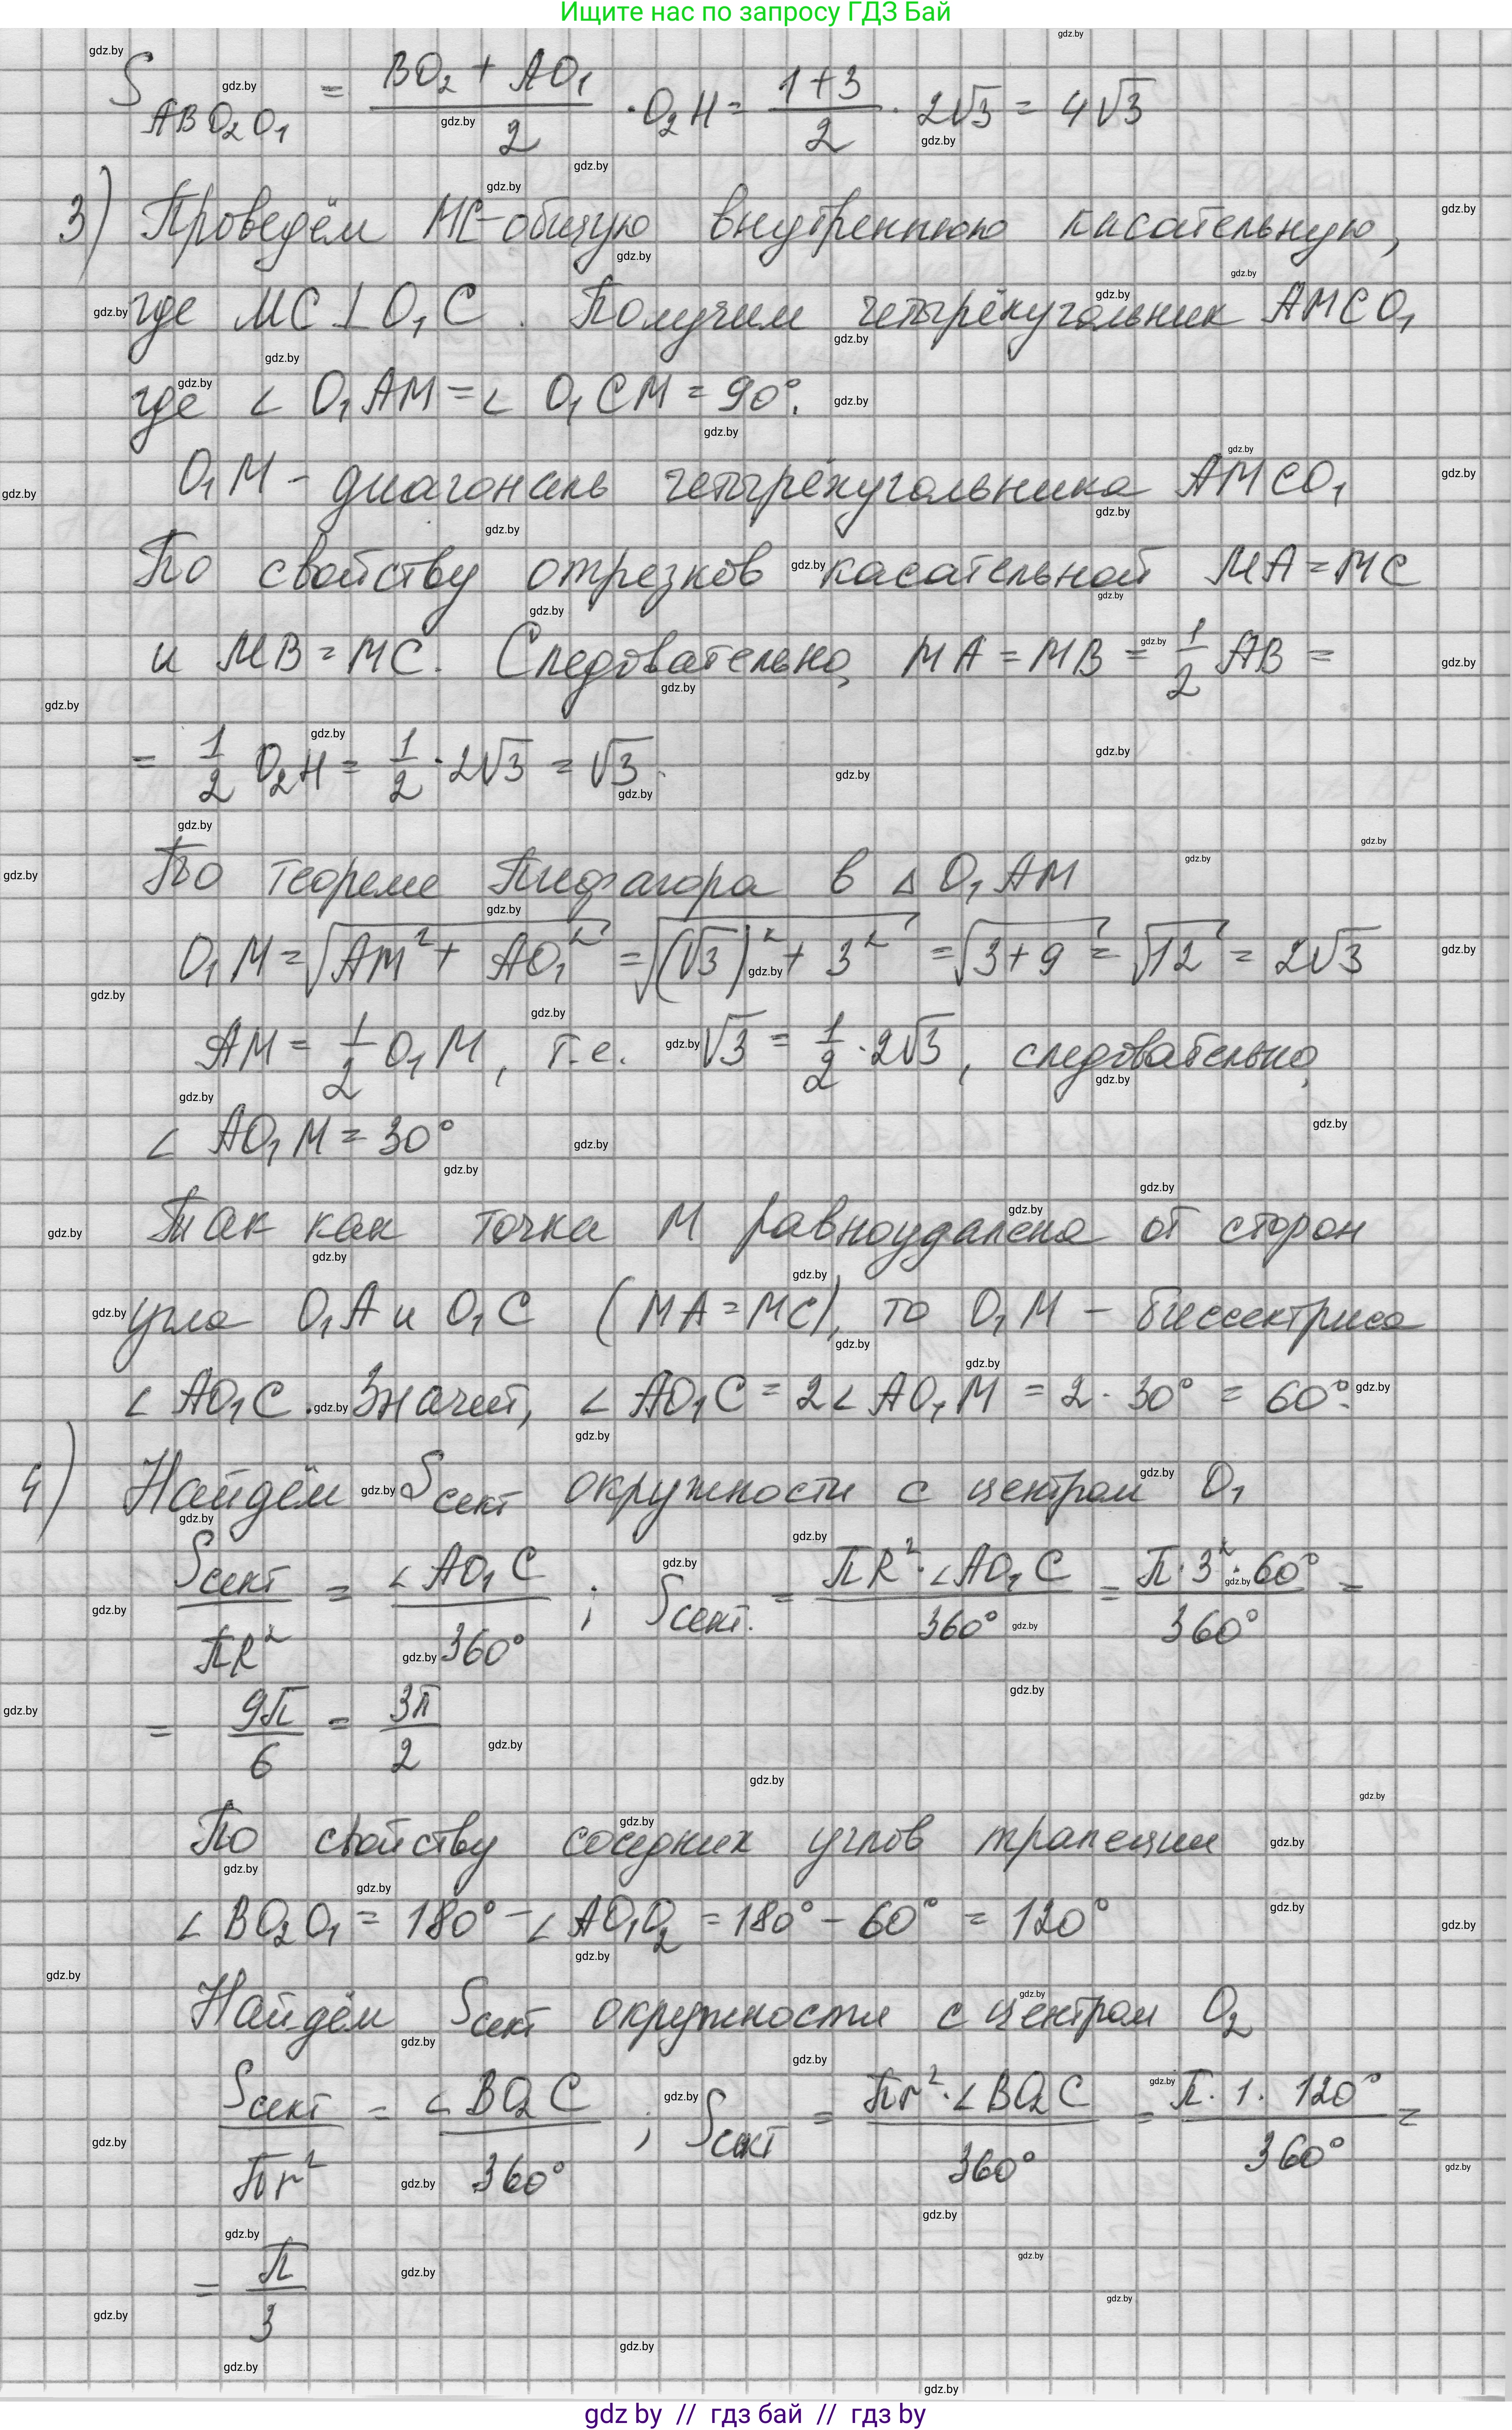 Ищите нас по запросу ГДЗ Бай
S ABO₂O₁ = (BO₂ + AO₁)/2 · O₂H = (1+3)/2 · 2√3 = 4√3
3) Проведём MC-общую внутреннюю касательную,
где MC ⊥ O₁C. Получим четырёхугольник AMCO₁
где ∠ O₁AM = ∠ O₁CM = 90°.
O₁M - диагональ четырёхугольника AMCO₁
По свойству отрезков касательной MA = MC
и MB = MC. Следовательно, MA = MB = 1/2 AB =
= 1/2 O₂H = 1/2 · 2√3 = √3.
По теореме Пифагора в △ O₁AM
O₁M = √(AM² + AO₁²) = √((√3)² + 3²) = √(3+9) = √12 = 2√3
AM = 1/2 O₁M, т.е. √3 = 1/2 · 2√3, следовательно,
∠ AO₁M = 30°
Так как точка M равноудалена от сторон
угла O₁A и O₁C (MA = MC), то O₁M - биссектриса
∠ AO₁C. Значит, ∠ AO₁C = 2∠ AO₁M = 2 · 30° = 60°.
4) Найдём Sсект окружности с центром O₁
Sсект/πR² = ∠AO₁C/360°; Sсект. = πR²·∠AO₁C/360° = π·3²·60°/360° =
= 9π/6 = 3π/2
По свойству соседних углов трапеции
∠ BO₂O₁ = 180° - ∠ AO₁O₂ = 180° - 60° = 120°
Найдём Sсект окружности с центром O₂
Sсект/πr² = ∠BO₂C/360°; Sсект = πr²·∠BO₂C/360° = π·1·120°/360° =
= π/3
gdz by // гдз бай // гдз by